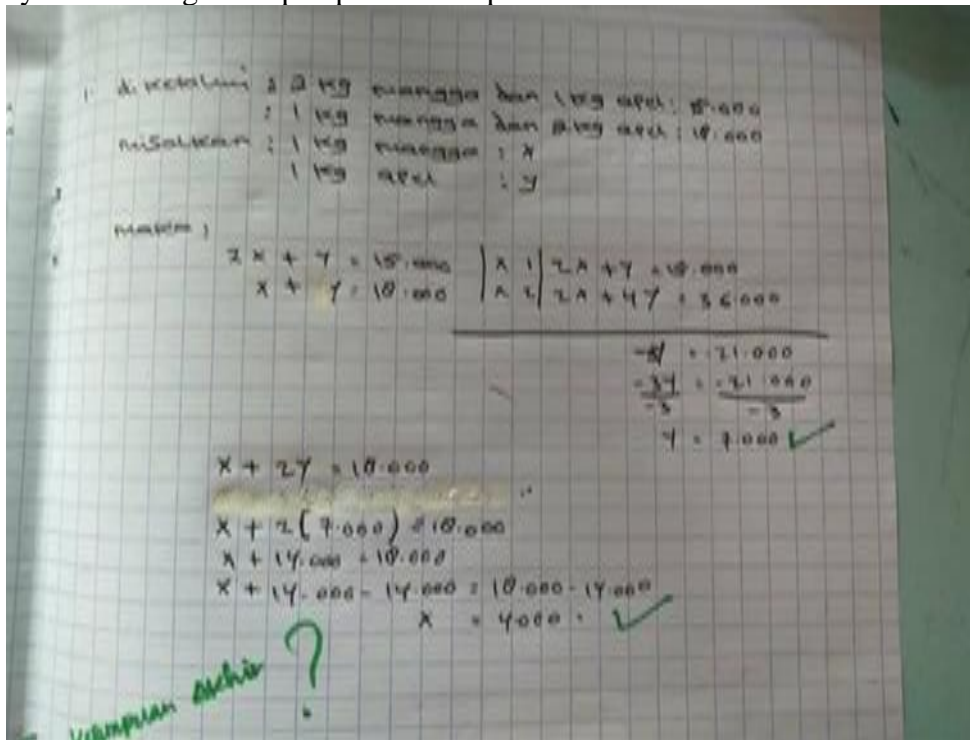 1. diketahui : 2 kg mangga dan 1 kg apel : 15.000
: 1 kg mangga dan 2 kg apel : 18.000
misalkan : 1 kg mangga : x
1 kg apel : y
maka ;
2x + y = 15.000 | x 1 | 2x + y = 15.000
x + y = 18.000 | x 2 | 2x + 4y = 36.000
= -21.000
-3y = -21.000
-3 -3
y = 7.000 ✓
x + 2y = 18.000
x + 2(7.000) = 18.000
x + 14.000 = 18.000
x + 14.000 - 14.000 = 18.000 - 14.000
x = 4000. ✓
?